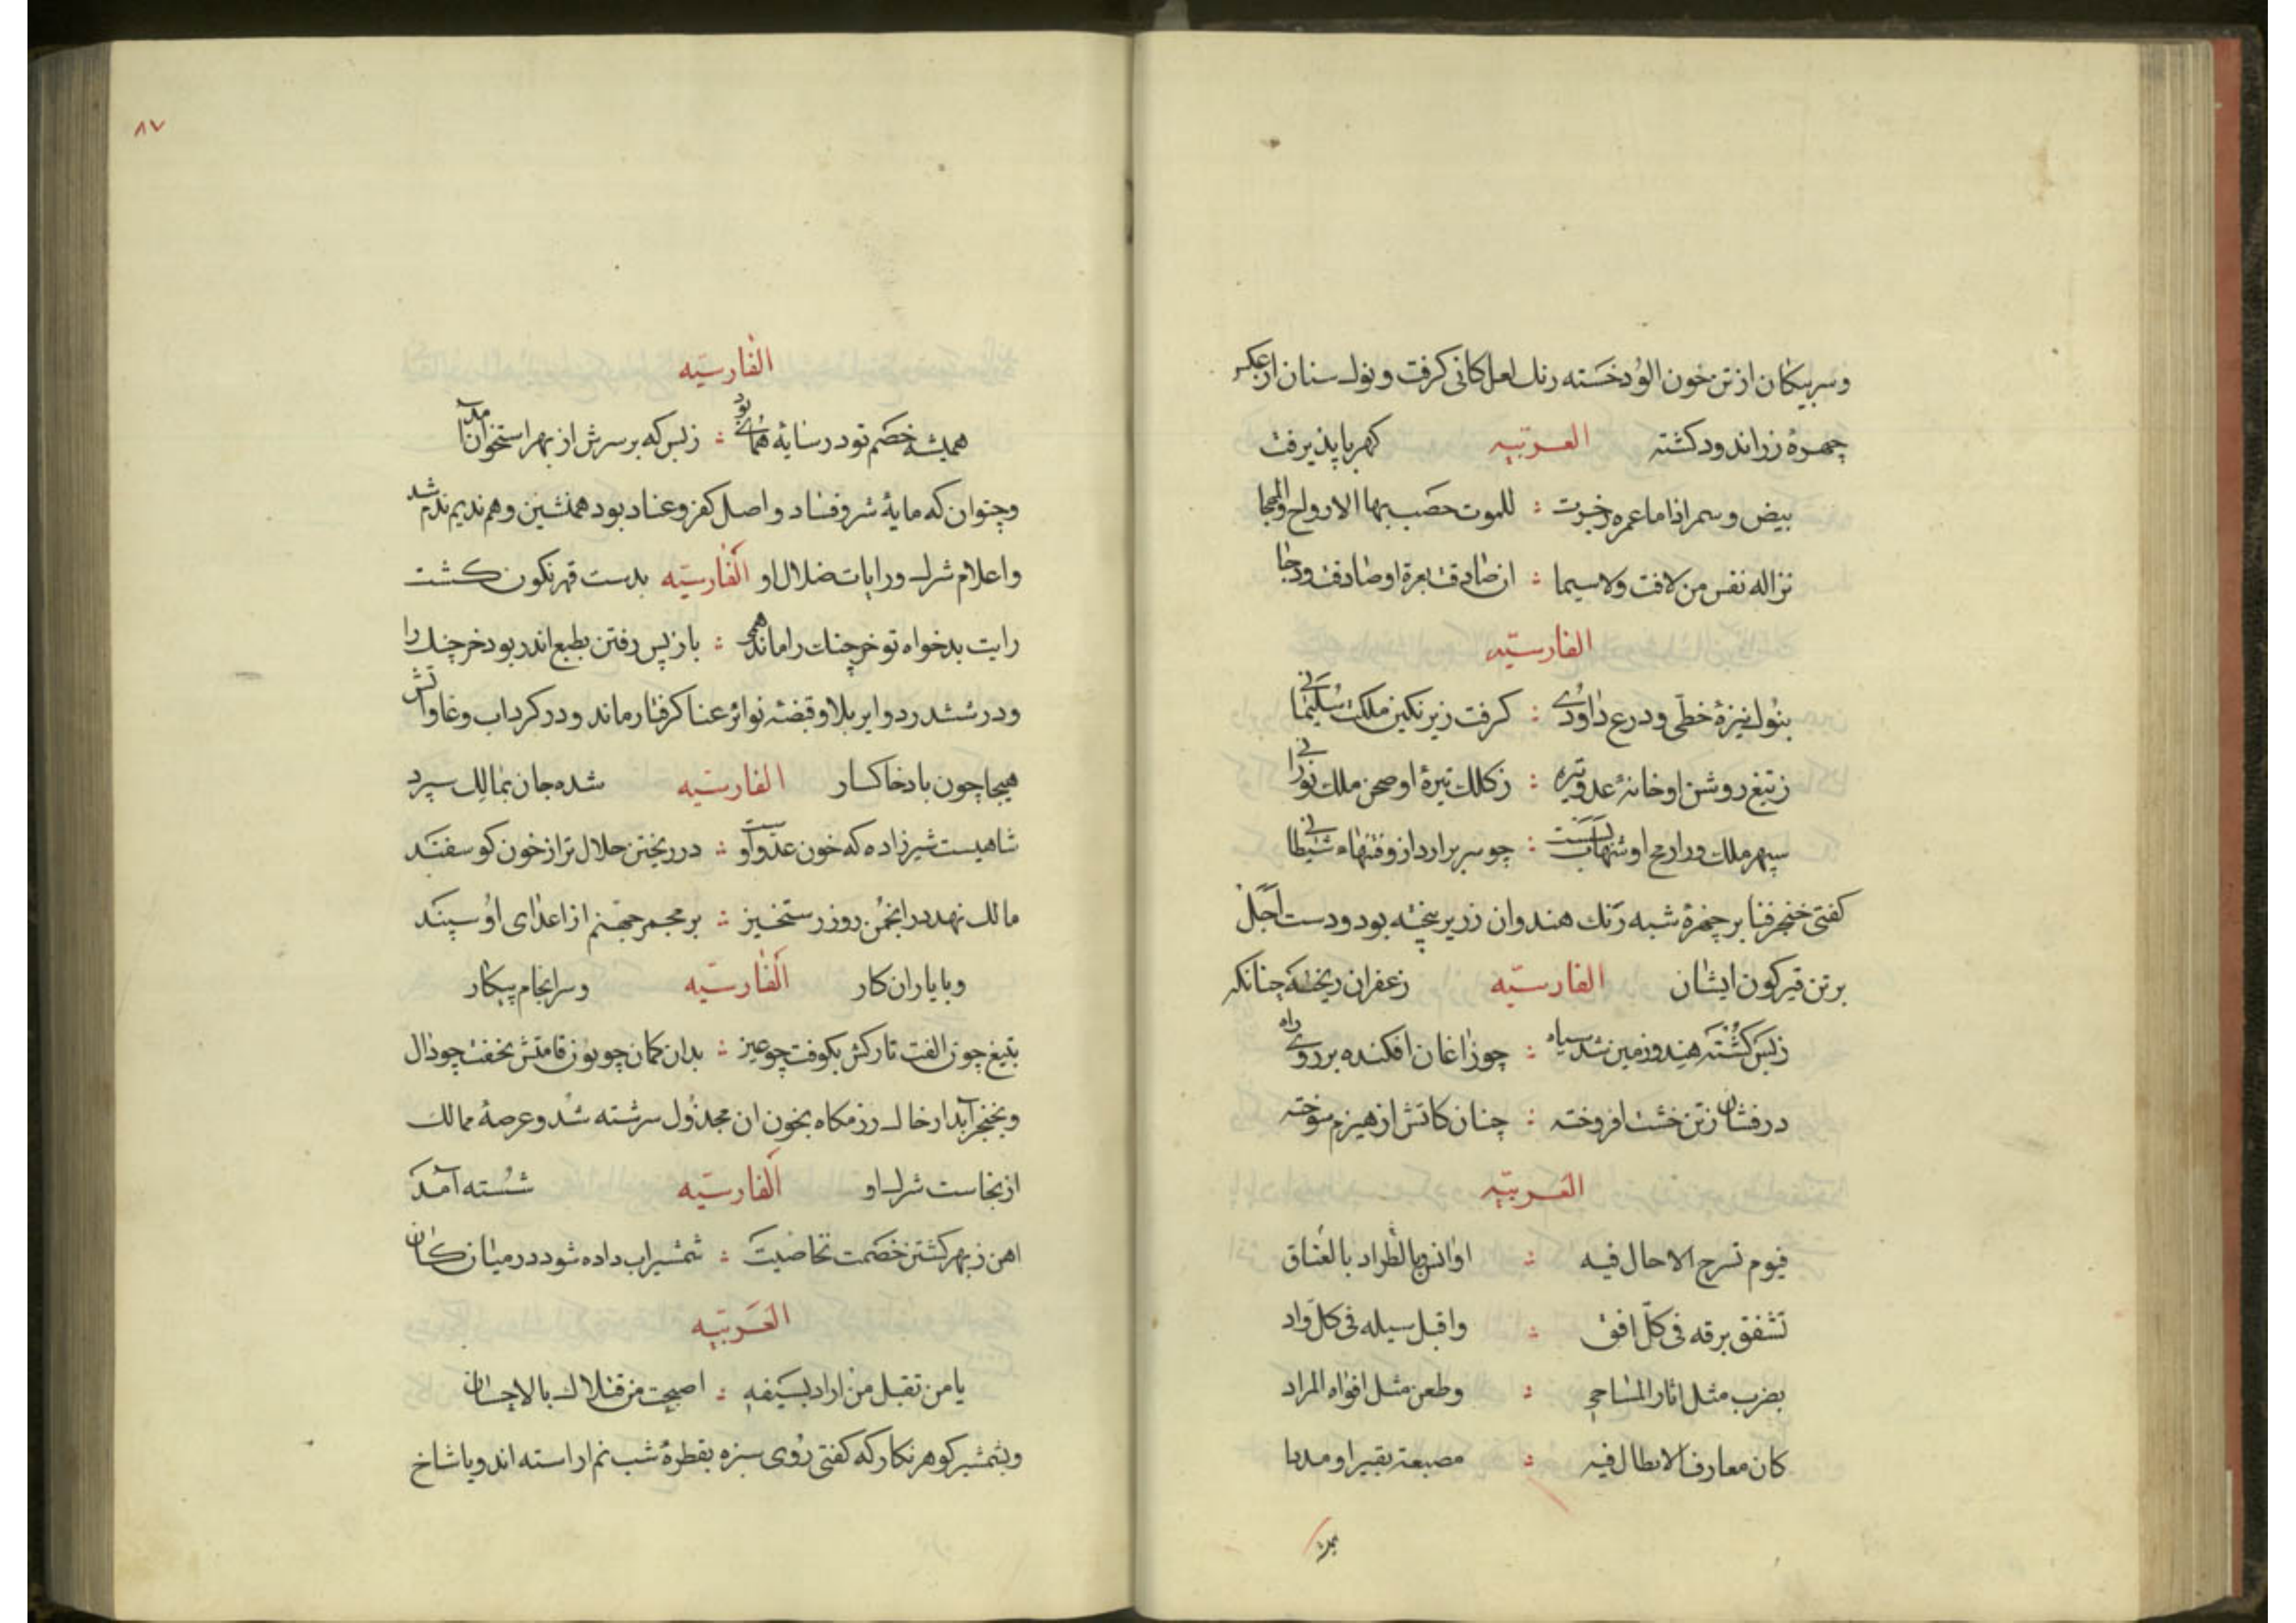 وسر پیکان از تن خون الود خسته رنك لعل کانی کرفت ونوك سنان از عکس
چهرۀ زر اندود کشته العربیه کهربا پذیرفت
بیض وسمر اذا ما عمره للموت حصب بها الارواح والمهجا
نزاله نفس من لاقت ولا سیما : ان صادفت او صادفت ودجا
الفارسیّه
بنوك نیزۀ خطّی ودرع داودی : کرفت زیر نکین ملکت سلیمانی
ز تیغ روشن او خانۀ عدو تیره : ز کلك تیرۀ او صحن ملك نورانی
سپهر ملك ورا رمح او شهابست : چو سر برارد ازو فتنهاء شیطانی
کفتی خنجر فنا بر چهرۀ شبه رنك هندوان زریر بیخته بود ودست اجل
بر تن قیرکون ایشان الفارسیّه زعفران ریخته چنانکه
زبس کشته هندو زمین شد سیاه : چو زاغان افکنده بر روی راه
درفشان ز تن خشت افروخته : چنان کاتش از هیزم سوخته
العربیّه
فیوم تسرج الاحال فیه : بالطراد بالعناق
تشفق برقه فی کلّ افق : واقبل سیله فی کلّ واد
بضرب مثل اثار المساحی : وطعن مثل افواه المراد
کان معارف الابطال فیه : مصبعة بقیر او مدا
۸۷
الفارسیّه
همیشه خصم تو در سایۀ همای بود : زبس که بر سرش از بهر استخوان آمد
وچتوان که مایۀ شر وفساد واصل کفر وعناد بود همنشین وهم ندیم ندم شد
واعلام شرك ورایات ضلال او الفارسیّه بدست قهر نکون کشت
رایت بدخواه تو خرچنك را ماند همی : باز پس رفتن بطبع اندر بود خرچنك را
ودر ششدر دوایر بلا وقبضۀ نوائر عنا کرفتار ماند ودر کرداب وغا وآتش
هیجا چون باد خاکسار الفارسیّه شده جان بمالك سپرد
شاهیست شیرزاده که خون عدو آوست : در ریختن حلال تر از خون کوسفند
مالك نهد در انجمن روز رستخیز : بر مجمر جهنم از اعدای او سپند
وبا یاران کار الفارسیّه وسرانجام پیکار
بتیغ چون الفت تارکش بکوفت چو عین : بدان کمان چو نون قامتش بخفت چو دال
وبخنجر آبدار خاك رزمکاه بخون ان مجذول سرشته شد وعرصۀ ممالك
از نجاست شرك او الفارسیّه شسته آمد
اهن ز بهر کشتن خصمت بخاصیت : شمشیر اب داده شود در میان کان
العربیّه
یا من تقبل من اراد بسیفه : اصبحت من قتلاك بالاحسان
وبشمشیر کوهر نکار که کفتی روی سبزه بقطرۀ شب نم اراسته اند ویا شاخ